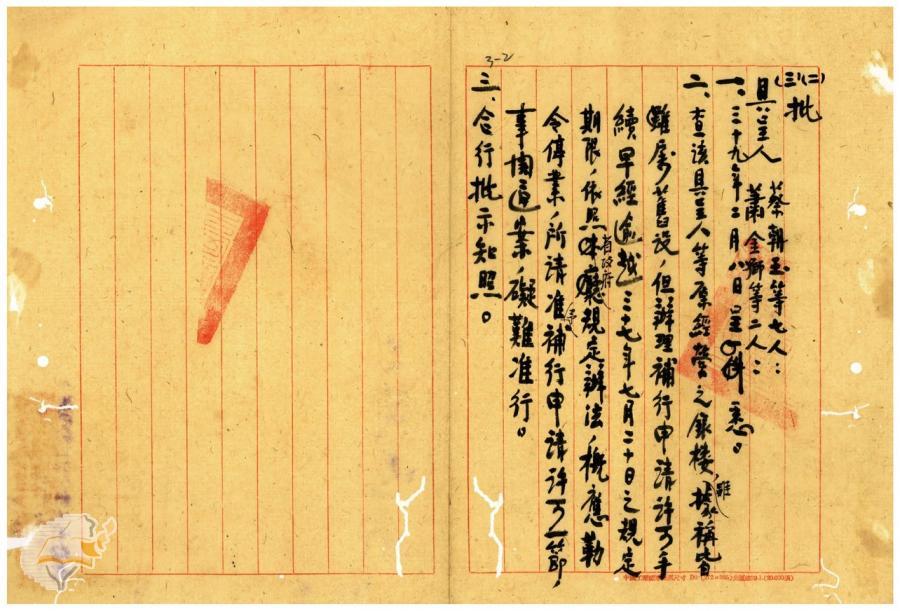 3-2
(三)(二)批
具呈人 蔡朝玉等七人:
蕭金獅等二人:
一、三十九年二月八日呈件悉。
二、查該具呈人等原經營之銀樓,雖據稱皆
屬舊設,但辦理補行申請許可手
續早經逾越三十七年七月二十日之規定
期限,依照省政府規定辦法,概應予勒
令停業,所請准補行申請許可一節,
事關通案,礙難准行。
三、合行批示知照。